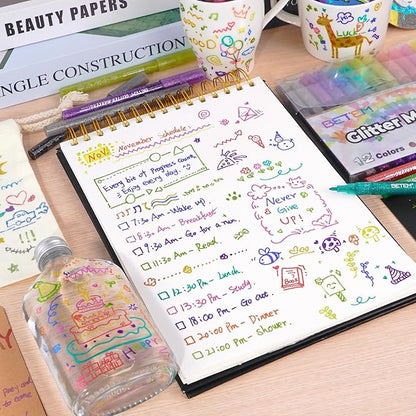 BEAUTY PAPERS
NGLE CONSTRUCTION
LUCY
BETEM
Glitter
12 Colors
BETEM
Nov
November Schedule
Every bit of Progress Count
Enjoy every day.
7:30 Am - Wake up
8:30 Am - Breakfast
9:30 Am - Go for a run
11:30 Am - Read
12:30 Pm - Lunch.
13:30 Pm - Study
18:00 Pm - Go out.
20:00 Pm - Dinner
21:00 Pm - Shower.
Never
Give
UP!
Book